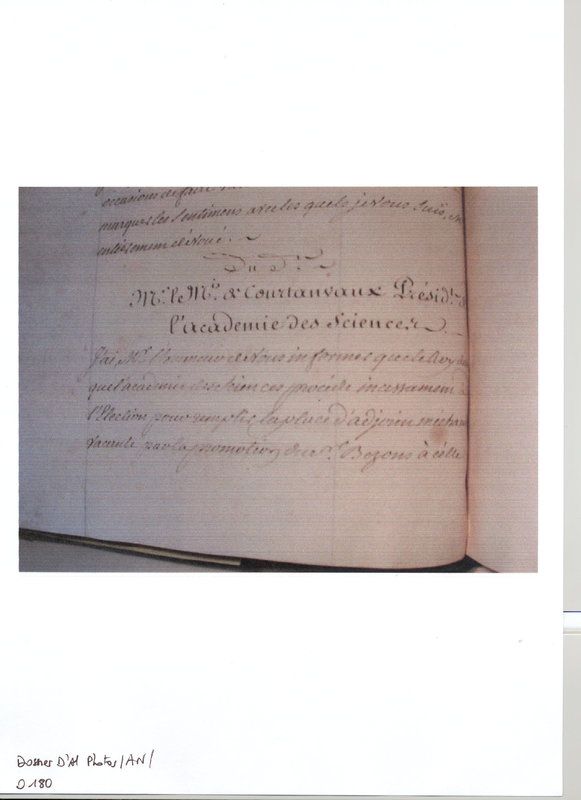 occasions de faire
marquer les sentimens avec les quels je vous suis,
entièrement dévoué.
Du d.
Mr. le Mis. de Courtanvaux Présidt. d
l'académie des Sciences.
J'ai, Mr. l'honneur de vous informer que le Roy
que l'académie des sciences procéde incessament à
l'Election pour remplir la place d'adjoint méchan
vacante par la promotion de Mr. Bezons à celle
Dossier D'Al Photos/AN/
D 180